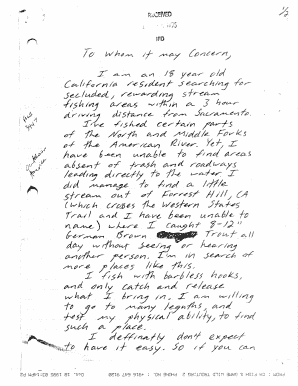 1/2
RECEIVED
IFD
To whom it may Concern,
I am an 18 year old
California resident searching for
secluded, rewarding stream
fishing areas within a 3 hour
driving distance from Sacramento.
I've fished certain parts
of the North and Middle Forks
of the American River. Yet, I
have been unable to find areas
absent of trash and roadways
leading directly to the water. I
did manage to find a little
stream out of Forrest Hill, CA
(which crosses the Western States
Trail and I have been unable to
name) where I caught 8-12"
German Brown Trout all
day without seeing or hearing
another person. I'm in search of
more places like this.
I fish with barbless hooks,
and only catch and release
what I bring in. I am willing
to go to many lengths, and
test my physical ability, to find
such a place.
I deffinatly don't expect
to have it easy. So if you can